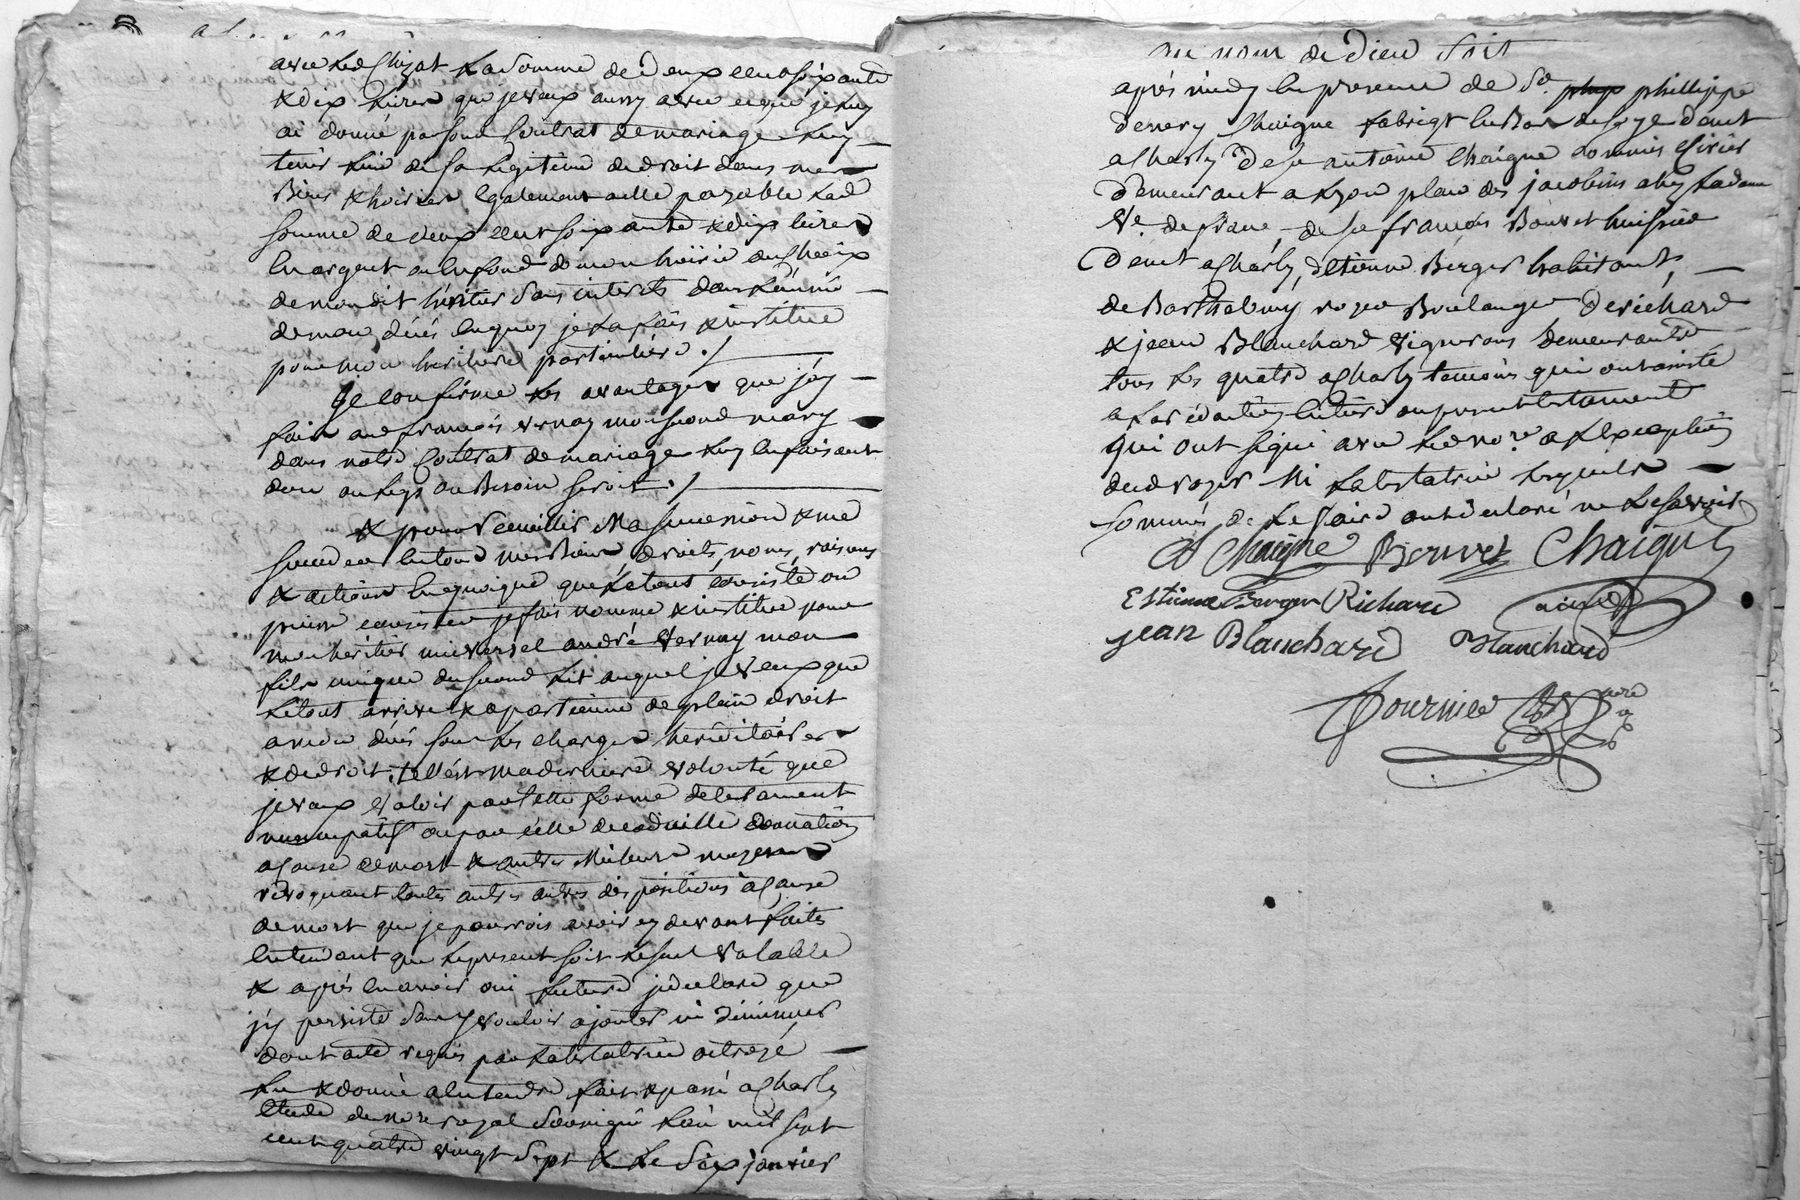 avec led Clizat la somme de deux cent soixante
& dix livres que je veux aussy avec ce que je luy
ai donné par son Contrat de mariage luy
tenir lieu de sa legitime de droit dans mes
Biens & hoiries Egalement a elle payable lad
somme de deux cent soixante & dix livres
En argent ou En fond de mon hoirie au Choix
de mondit héritier sans interets dans l'année
de mon décés En quoy je la fais & institue
pour mon heritiere particuliére ./
Je confirme les avantages que j'ay
fait aud françois vernay mon second mary
dans notre Contrat de mariage luy En faisant
don ou legs au Besoin seroit ./
& pour recueillir Ma succession & me
succeder En tous mes Biens droits, noms, raisons
& actions En quoique que le tout consiste ou
puisse consister je fais nomme & institue pour
mon héritier universel andré Vernay mon
fils unique du second lit auquel je veux que
le tout arrive & apartienne de plein droit
a mon dués sous les charges heréditaires
& de droit, telle est ma derniere volonté que
je veux valoir par cette forme de testament
nuncupatif ou par celle de codicille donation
a Cause de mort & autres Meilleurs moyens
révoquant toutes autres autres dispositions à Cause
de mort que je pourrois avoir cy devant faites
Entendant que le present soit le seul valable
& aprés En avoir oui lecture je declare que
j'y persiste sans y vouloir ajouter ni diminuer
dont acte requis par la testatrice octroyé
lu & donné a Entendre fait & passé a Charly
Etude du no.re royal soussigné l'an mil sept
cent quatre vingt sept & le six janvier
au nom de dieu soit
aprés midy En presence de Sr. phillippe
demery Chaigne fabriqt En Bas de soye demt
a Charly de Sr antoine Chaigne commis
demeurant a Lyon place des jacobins chez Madame
Ve. defrane, de Sr françois Bouvet huissier
demt a Charly, d'Etienne Berger habitant,
de Barthelemy roger Boulanger de richard
& jean Blanchard vignerons demeurants
tous les quatre a Charly temoins qui ont assisté
a la rédaction Entiere du present testament
qui ont signé avec led no.re a l'Exception
dud roger Ni la testatrice lesquels
sommés de le faire ont déclaré ne le savoir
Chaigne Bouvet Chaigne
Estienne Berger Richard
jean Blanchard Blanchard
Fournier nore